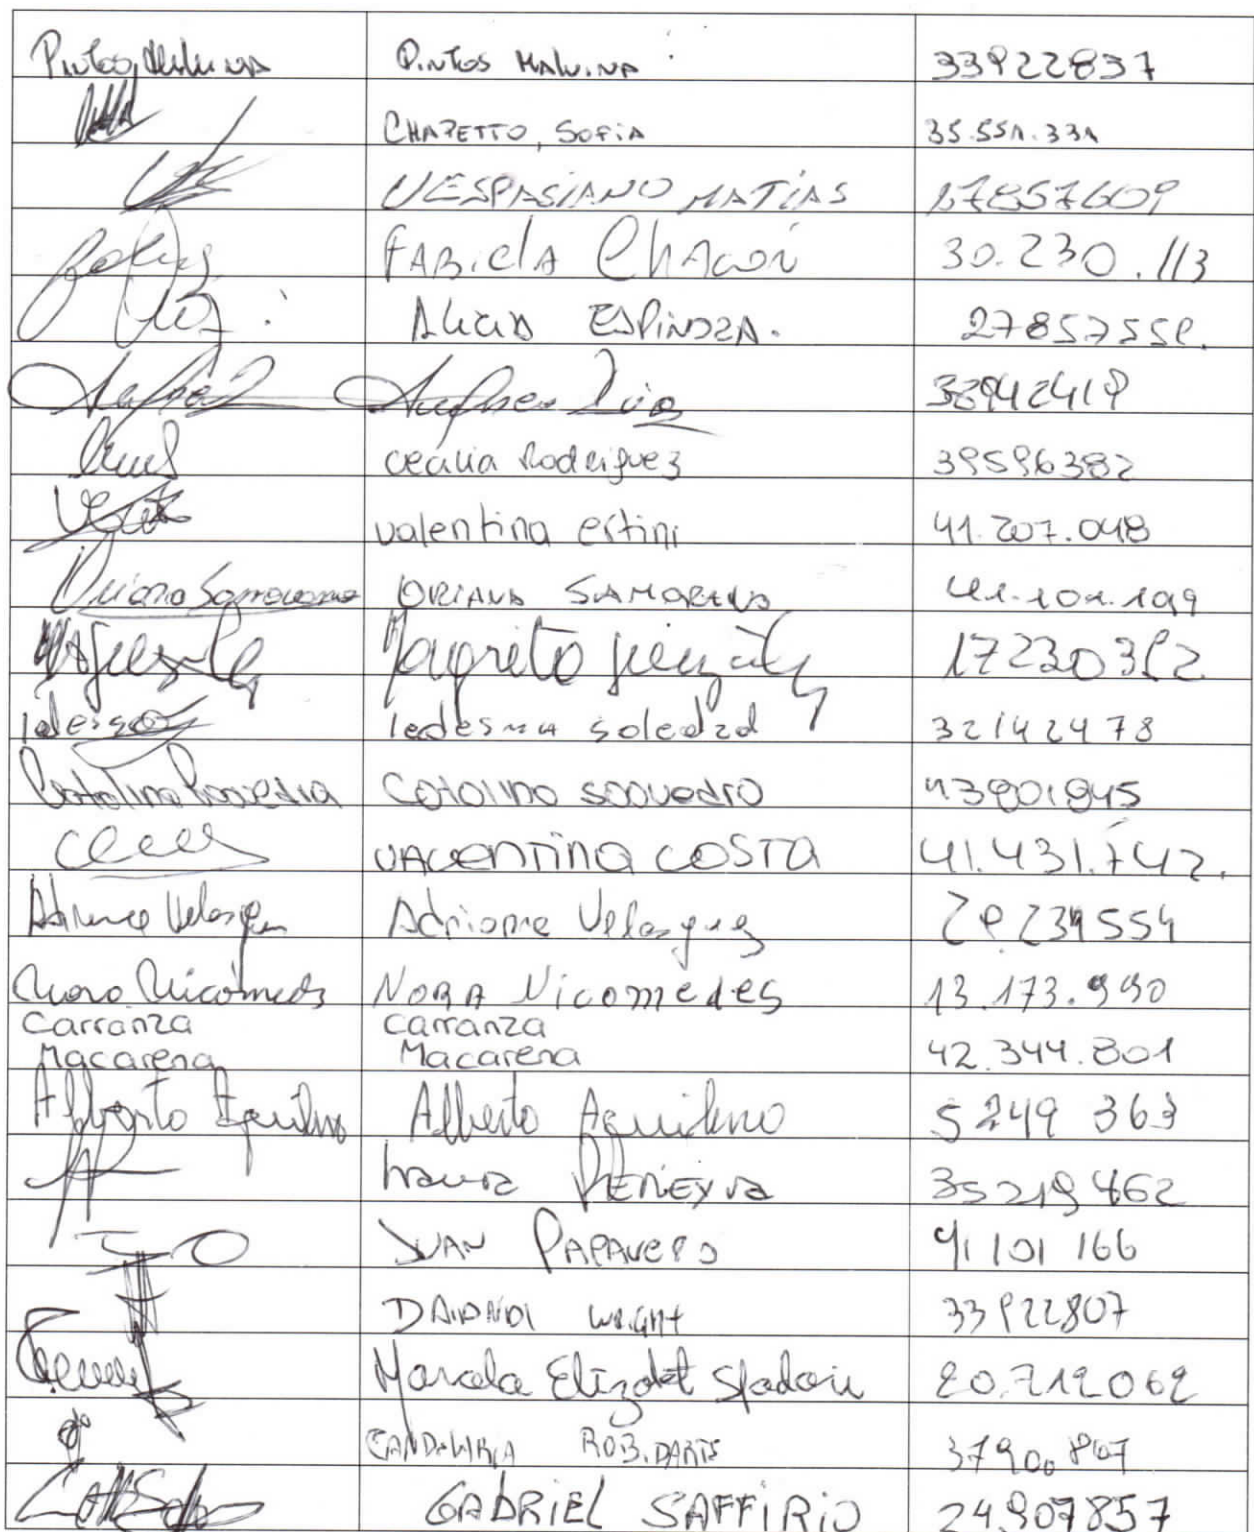 Pintos Malvina PINTOS MALVINA 33922837
CHAPETTO, SOFIA 35.551.331
VESPASIANO MATIAS 27857609
FABIOLA CHACON 30.230.113
ALICIA ESPINOZA. 27857558.
38942418
cecilia Rodriguez 39596382
valentina estini 41.207.048
Oriana Samorano ORIANA SAMORANO 41.101.199
Margarita 17230392
ledesma soledad 32142478
Catalina Saavedra catalina saavedra 43901945
VALENTINA COSTA 41.431.742.
Adriana Velasquez Adriana Velasquez 29234554
Nora Nicomedes NORA Nicomedes 13.173.990
Carranza Carranza
Macarena Macarena 42.344.801
Alberto Aquilino Alberto Aquilino 5249 363
Laura PEREYRA 35219462
JUAN PAPAVERO 41 101 166
DAIANA WRIGHT 33922807
Marcela Elizabet Spadoni 20.712062
CANDELARIA ROBIDARTS 37900807
GABRIEL SAFFIRIO 24.907857